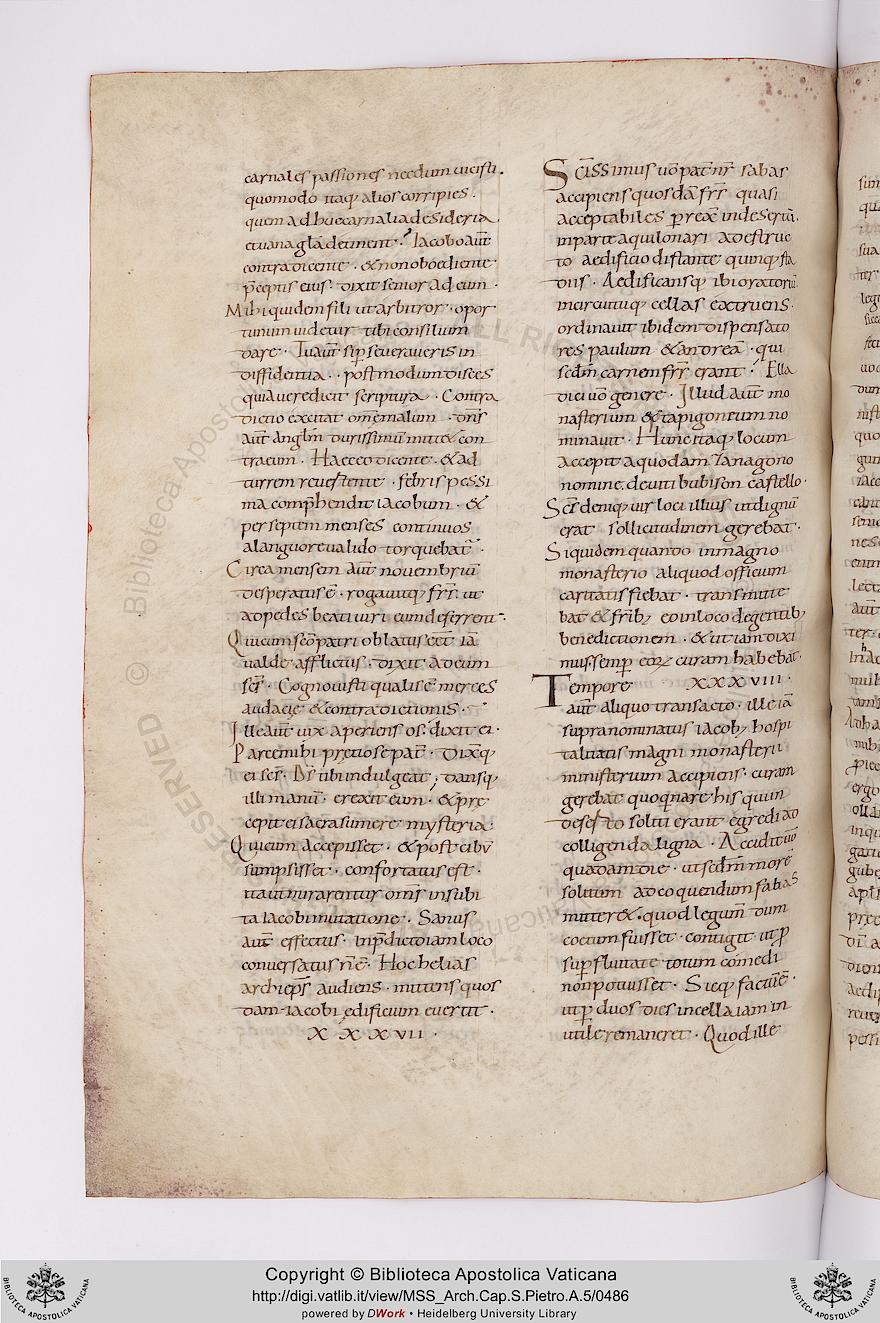 carnales passiones necdum vicisti.
quomodo itaq; alios corripies.
quem adhuc carnalia desideria
et vana glā detinent. Iacobo aūt
contradicente. & non obœdiente
p̄ceptis eius. dixit senior ad eum.
Mihi quidem fili ut arbitror. opor
tunum videtur tibi consilium
dare. Tu aūt si p̱severaveris in
diffidentia. postmodum disces
quia veredicit scriptura. Contra
dictio excitat om̄e malum. dn̄s
aūt anglm̄ durissimū mitt& con
tra eum. Haec eo dicente. & ad
turrem revertente. febris pessi
ma comp̄hendit iacobum. &
per septem menses continuos
a languore valido torquebat̄.
Circa mensem aūt novembriū
desperatus ē. rogavitq; frr̄. ut
ad pedes beati viri eum deferrent.
Qui cum sc̄o patri oblatus eēt iā
valde afflictus. dixit ad eum
sc̄s. Cognovisti qualis ē merces
audaciæ & contradictionis.
Ille aūt vix aperiens os. dixit ei.
Parce mihi prętiose pat̄. Dixq;
ei sc̄s. Ds̄ tibi indulgeat; dansq;
illi manū. erexit eum. & præ
cepit ei sacra sumere mysteria.
Qui cum accepisset. & post cibū
sumpsisset. confortatus est.
ita ut mirarentur om̄s in subi
ta iacobi mutatione. Sanus
aūt effectus. in p̄dicto iam loco
conversatus n̄ ē. Hoc helias
archiep̄s audiens. mittens quos
dam iacobi edificium evertit.
XXXVII.
Sc̄issimus vō pat̄ nr̄ sabas
accipiens quosdā frr̄ quasi
acceptabiles p̱rex& in desertū.
in parte aquilonari a destruc
to aedificio distante quinq; sta
diis. Aedificansq; ibi oratoriū
in circuituq; cellas extruens.
ordinavit ibidem dispensato
res paulum & andreā. qui
sedm̄ carnem frr̄ erant. Ella
dici vō genere. Illud aūt mo
nasterium & tapigoneum no
minavit. Hunc itaq; locum
accepit a quodam Ianagono
nomine. de viti bubison castello.
Sc̄s deniq; vir loci illius ut dignū
erat sollicitudinem gerebat.
Siquidem quando in magno
monasterio aliquod officium
caritatis fiebat. transmitte
bat & frib; eo in loco degentib;
benedictionem. & ut iam dixi
mus semp̱ eoꝝ curam habebat.
Tempore XXXVIII.
aūt aliquo transacto. ille iā
supranominatus iacob; hospi
talitatis magni monasterii
ministerium accipiens. curam
gerebat quoq;nare his qui in
deserto soliti erant egredi ad
colligenda ligna. Accidit vō
quadam die. ut sedm̄ more
solitum ad coquendum fabas
mitter&. quod legum̄ dum
coctum fuisset. contigit ut p̱
sup̱fluitate totum comedi
non potuisset. Sicq; factū ē.
ut p̱ duos dies in cella iam in
utile remaneret. Quod ille
Copyright © Biblioteca Apostolica Vaticana
http://digi.vatlib.it/view/MSS_Arch.Cap.S.Pietro.A.5/0486
powered by DWork • Heidelberg University Library